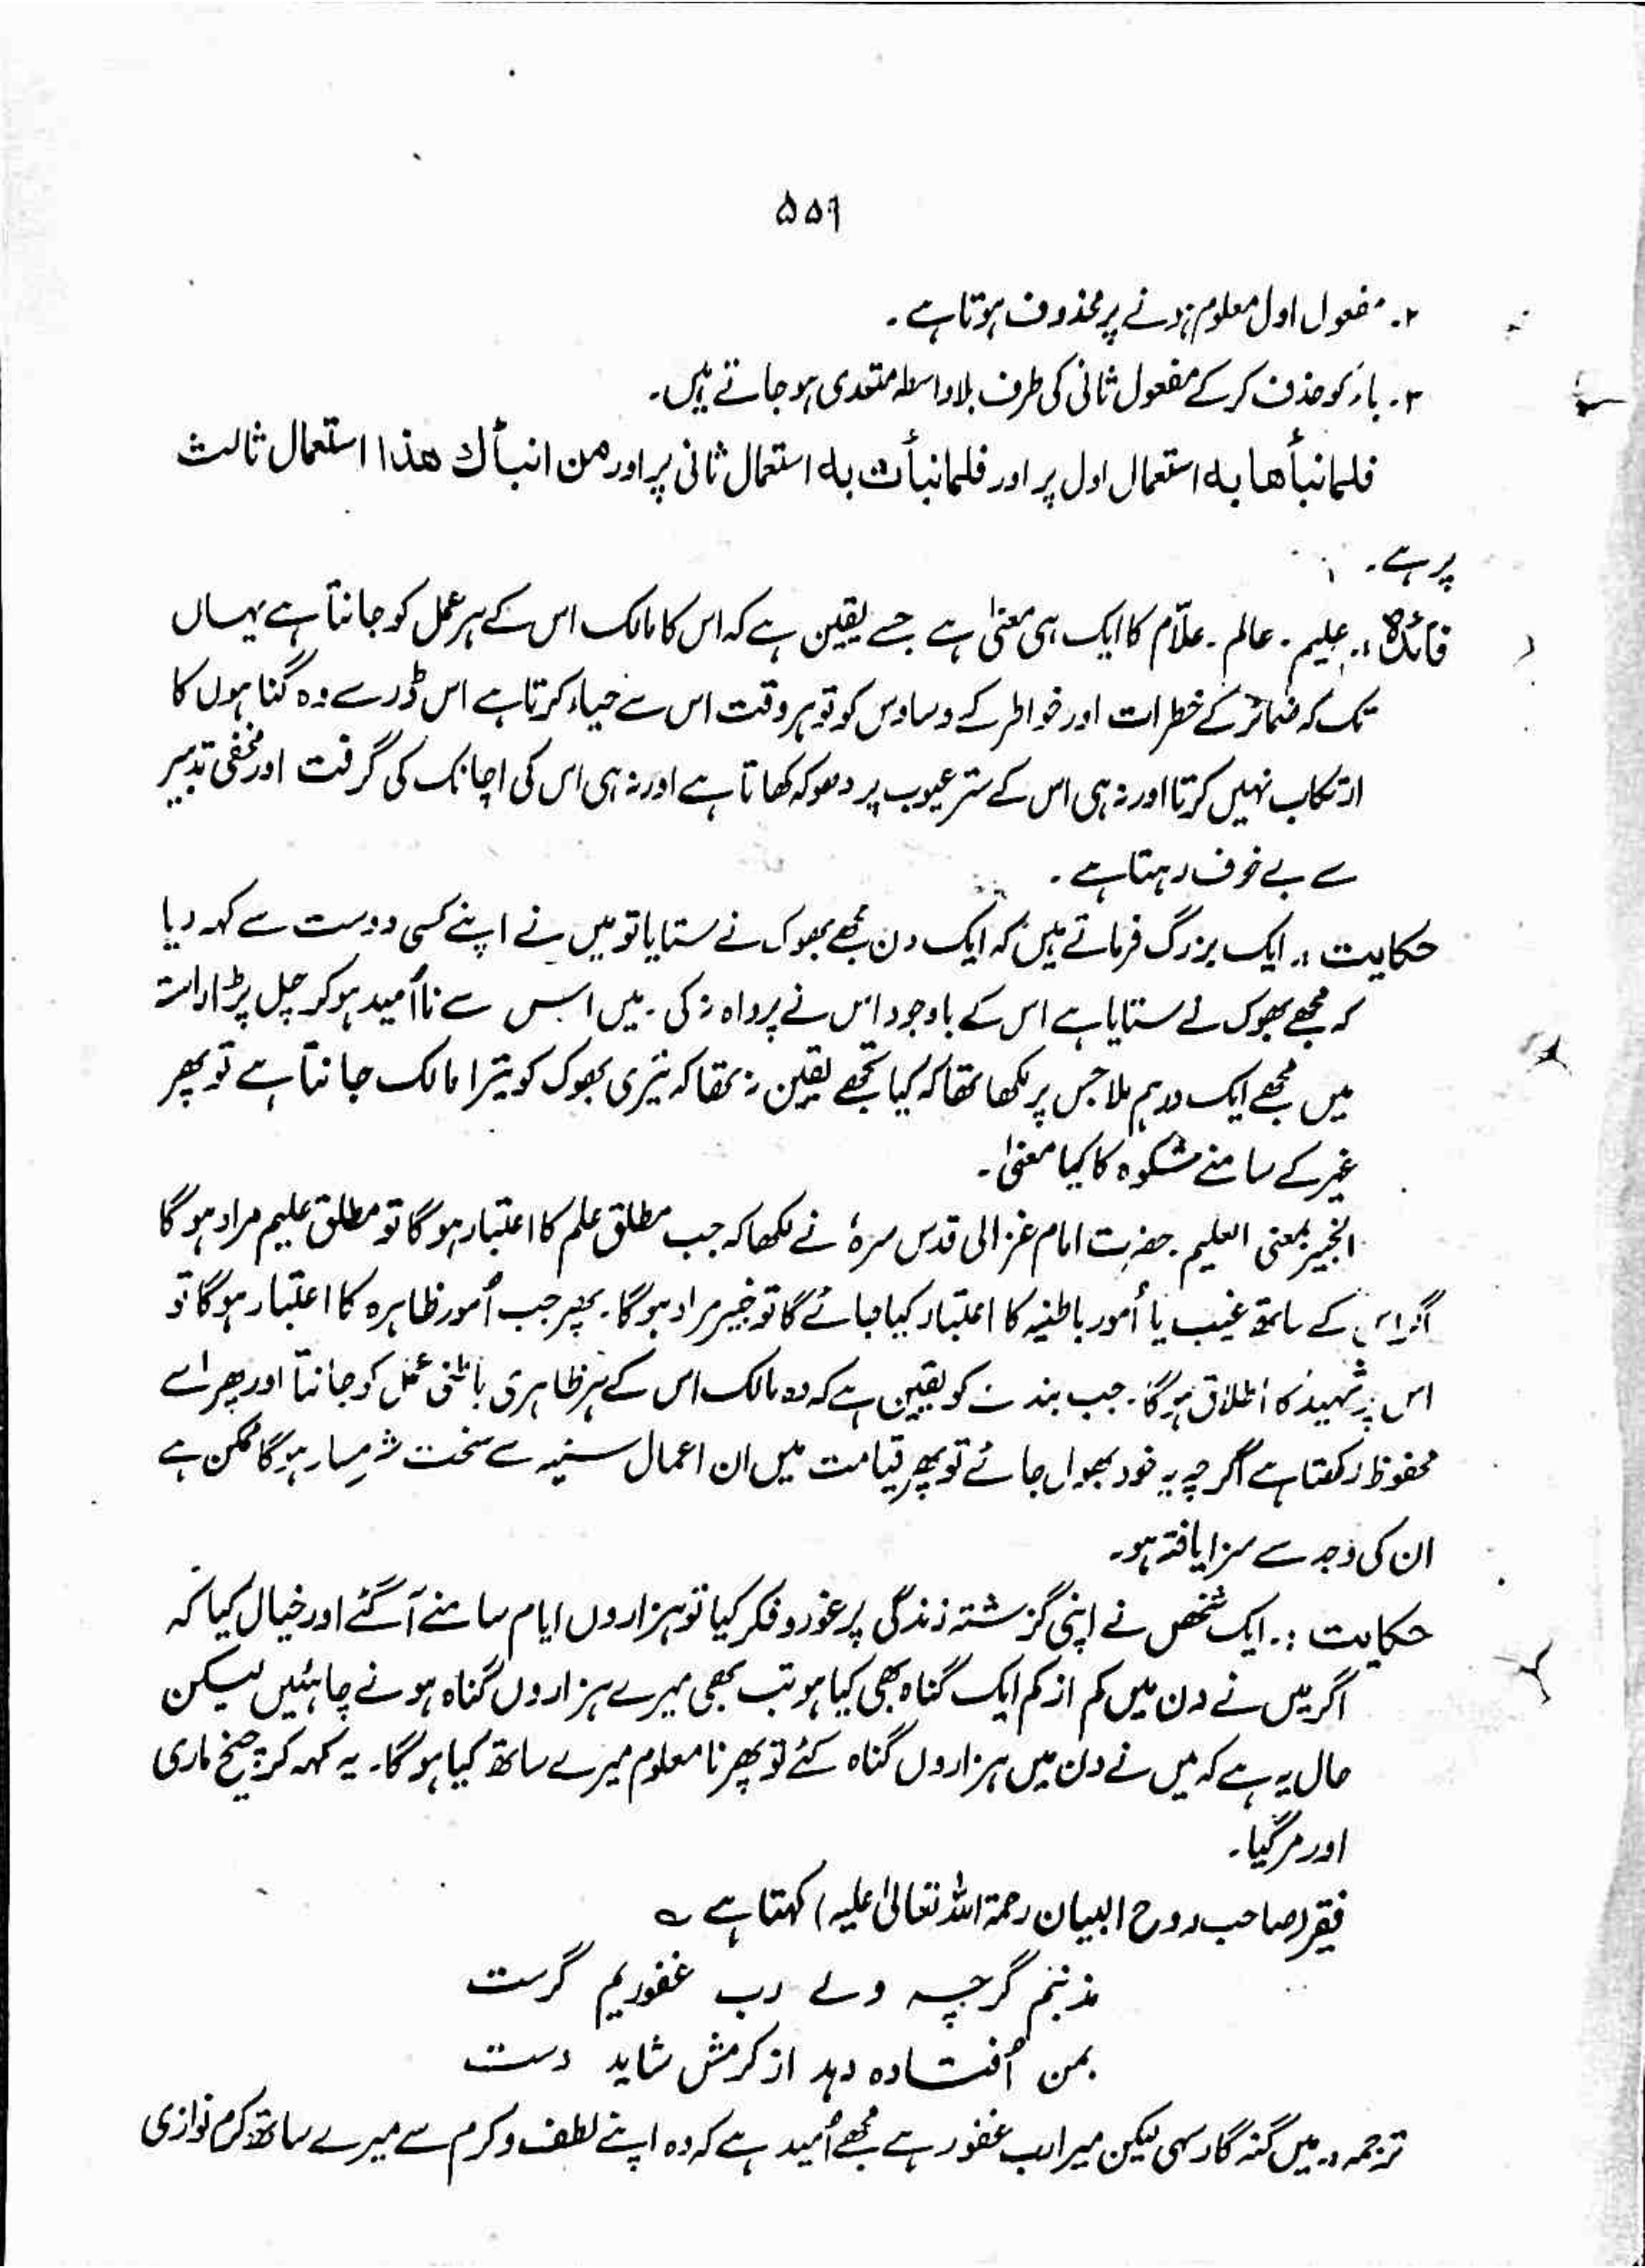 ۵۵۹
۲۔ مفعول اول معلوم ہونے پر محذوف ہوتا ہے ۔
۳۔ باء کو حذف کر کے مفعول ثانی کی طرف بلا واسطہ متعدی ہو جاتے ہیں۔
فلما نبأها به استعمال اول پر اور فلما نبأت به استعمال ثانی پر اور من انبأك هذا استعمال ثالث
پر ہے ۔
فائدہ :۔ علیم ۔ عالم ۔ علاّم کا ایک ہی معنیٰ ہے جسے یقین ہے کہ اس کا مالک اس کے ہر عمل کو جانتا ہے یہاں
تک کہ ضمائر کے خطرات اور خواطر کے وساوس کو تو ہر وقت اس سے حیاء کرتا ہے اس ڈر سے وہ گناہوں کا
ارتکاب نہیں کرتا اور نہ ہی اس کے ستر عیوب پر دھوکہ کھاتا ہے اور نہ ہی اس کی اچانک کی گرفت اور مخفی تدبیر
سے بے خوف رہتا ہے ۔
حکایت :۔ ایک بزرگ فرماتے ہیں کہ ایک دن مجھے بھوک نے ستایا تو میں نے اپنے کسی دوست سے کہہ دیا
کہ مجھے بھوک نے ستایا ہے اس کے باوجود اس نے پرواہ نہ کی ۔ میں اس سے ناامید ہو کر چل پڑا راستہ
میں مجھے ایک درہم ملا جس پر لکھا تھا کہ کیا تجھے یقین نہ تھا کہ تیری بھوک کو تیرا مالک جانتا ہے تو پھر
غیر کے سامنے شکوہ کا کیا معنیٰ ۔
الخبیر بمعنی العلیم ۔ حضرت امام غزالی قدس سرہٗ نے لکھا کہ جب مطلق علم کا اعتبار ہو گا تو مطلق علیم مراد ہو گا
اگر اس کے ساتھ غیب یا اُمور باطنیہ کا اعتبار کیا جائے گا تو خبیر مراد ہو گا ۔ پھر جب اُمور ظاہرہ کا اعتبار ہو گا تو
اس پر شہید کا اطلاق ہو گا ۔ جب بندے کو یقین ہے کہ وہ مالک اس کے ہر ظاہری باطنی عمل کو جانتا اور پھر اسے
محفوظ رکھتا ہے اگرچہ یہ خود بھول جائے تو پھر قیامت میں ان اعمال سئیہ سے سخت شرمسار ہو گا ممکن ہے
ان کی وجہ سے سزا یافتہ ہو۔
حکایت :۔ ایک شخص نے اپنی گزشتہ زندگی پر غور و فکر کیا تو ہزاروں ایام سامنے آ گئے اور خیال کیا کہ
اگر میں نے دن میں کم از کم ایک گناہ بھی کیا ہو تب بھی میرے ہزاروں گناہ ہونے چاہئیں لیکن
حال یہ ہے کہ میں نے دن میں ہزاروں گناہ کئے تو پھر نا معلوم میرے ساتھ کیا ہو گا۔ یہ کہہ کر چیخ ماری
اور مر گیا ۔
فقیر (صاحب روح البیان رحمۃ اللہ تعالیٰ علیہ) کہتا ہے ؎
مذنبم گرچہ ولے رب غفوریم گرست
بمن اُفتادہ دہد از کرمش شاید دست
ترجمہ :۔ میں گنہگار سہی لیکن میرا رب غفور ہے مجھے اُمید ہے کہ وہ اپنے لطف و کرم سے میرے ساتھ کرم نوازی